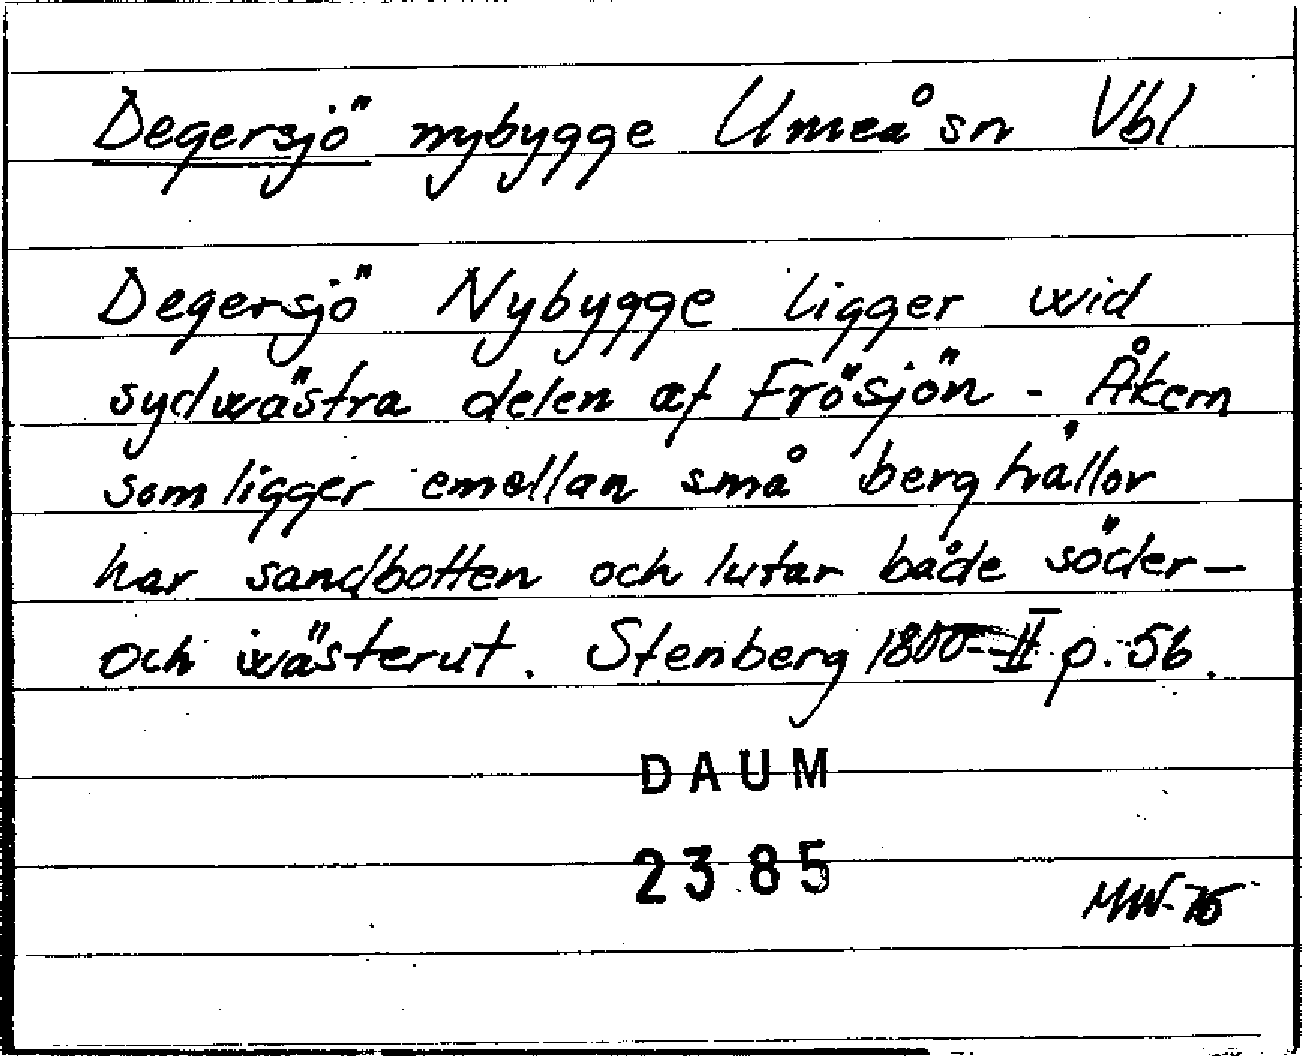 Degersjö nybygge Umeå sn Vbl
Degersjö Nybygge ligger wid
sydwästra delen af Frösjön - Åkern
som ligger emellan små berghällor
har sandbotten och lutar både söder-
och wästerut. Stenberg 1800-II p. 56.
DAUM
2385
MW-75